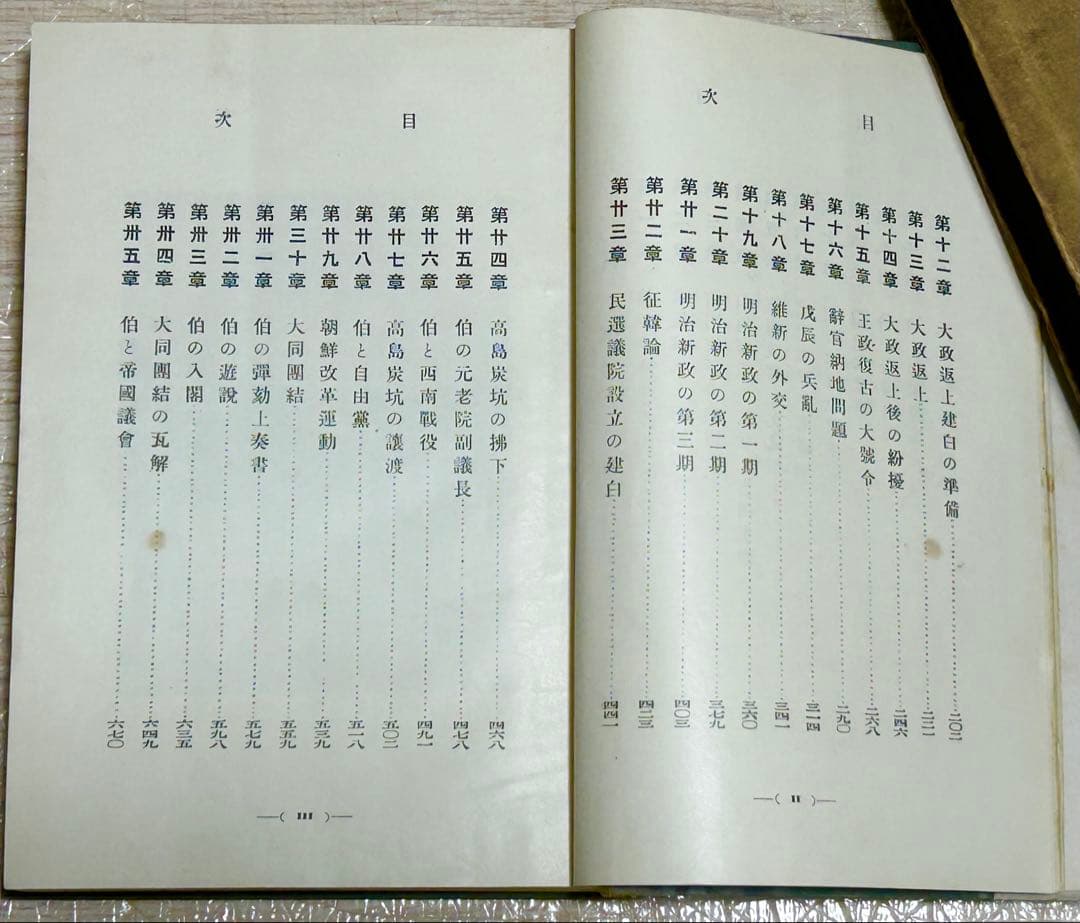 目次
第十二章 大政返上建白の準備 二〇二
第十三章 大政返上 二二一
第十四章 大政返上後の紛擾 二四六
第十五章 王政復古の大號令 二六八
第十六章 辭官納地問題 二九〇
第十七章 戊辰の兵亂 三一四
第十八章 維新の外交 三四一
第十九章 明治新政の第一期 三六〇
第二十章 明治新政の第二期 三七九
第廿一章 明治新政の第三期 四〇三
第廿二章 征韓論 四二三
第廿三章 民選議院設立の建白 四四一
―( II )―
目次
第廿四章 高島炭坑の拂下 四六八
第廿五章 伯の元老院副議長 四七八
第廿六章 伯と西南戰役 四九一
第廿七章 高島炭坑の讓渡 五〇二
第廿八章 伯と自由黨 五一八
第廿九章 朝鮮改革運動 五三九
第三十章 大同團結 五五九
第卅一章 伯の彈劾上奏書 五七九
第卅二章 伯の遊說 五九八
第卅三章 伯の入閣 六三五
第卅四章 大同團結の瓦解 六四九
第卅五章 伯と帝國議會 六七〇
―( III )―